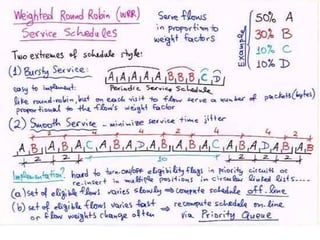 Weighted Round Robin (WRR)
Service Schedules
Serve flows
in proportion to
weight factors
Example
50% A
30% B
10% C
10% D
Two extremes of schedule style:
(1) Bursty Service:
A A A A A B B B C D
Periodic Service Schedule
easy to implement:
like round-robin, but on each visit to flow serve a number of packets (bytes)
proportional to the flow's weight factor
(2) Smooth Service - minimize service time jitter
A B A B A C
Implementation: hard to turn on/off eligibility flags in priority circuits or
re-insert in multiple positions in circular linked lists....
(a) set of eligible flows varies slowly ⇒ compute schedule off-line
(b) set of eligible flows varies fast ⇒ recompute schedule on-line
or flow weights change often via Priority Queue